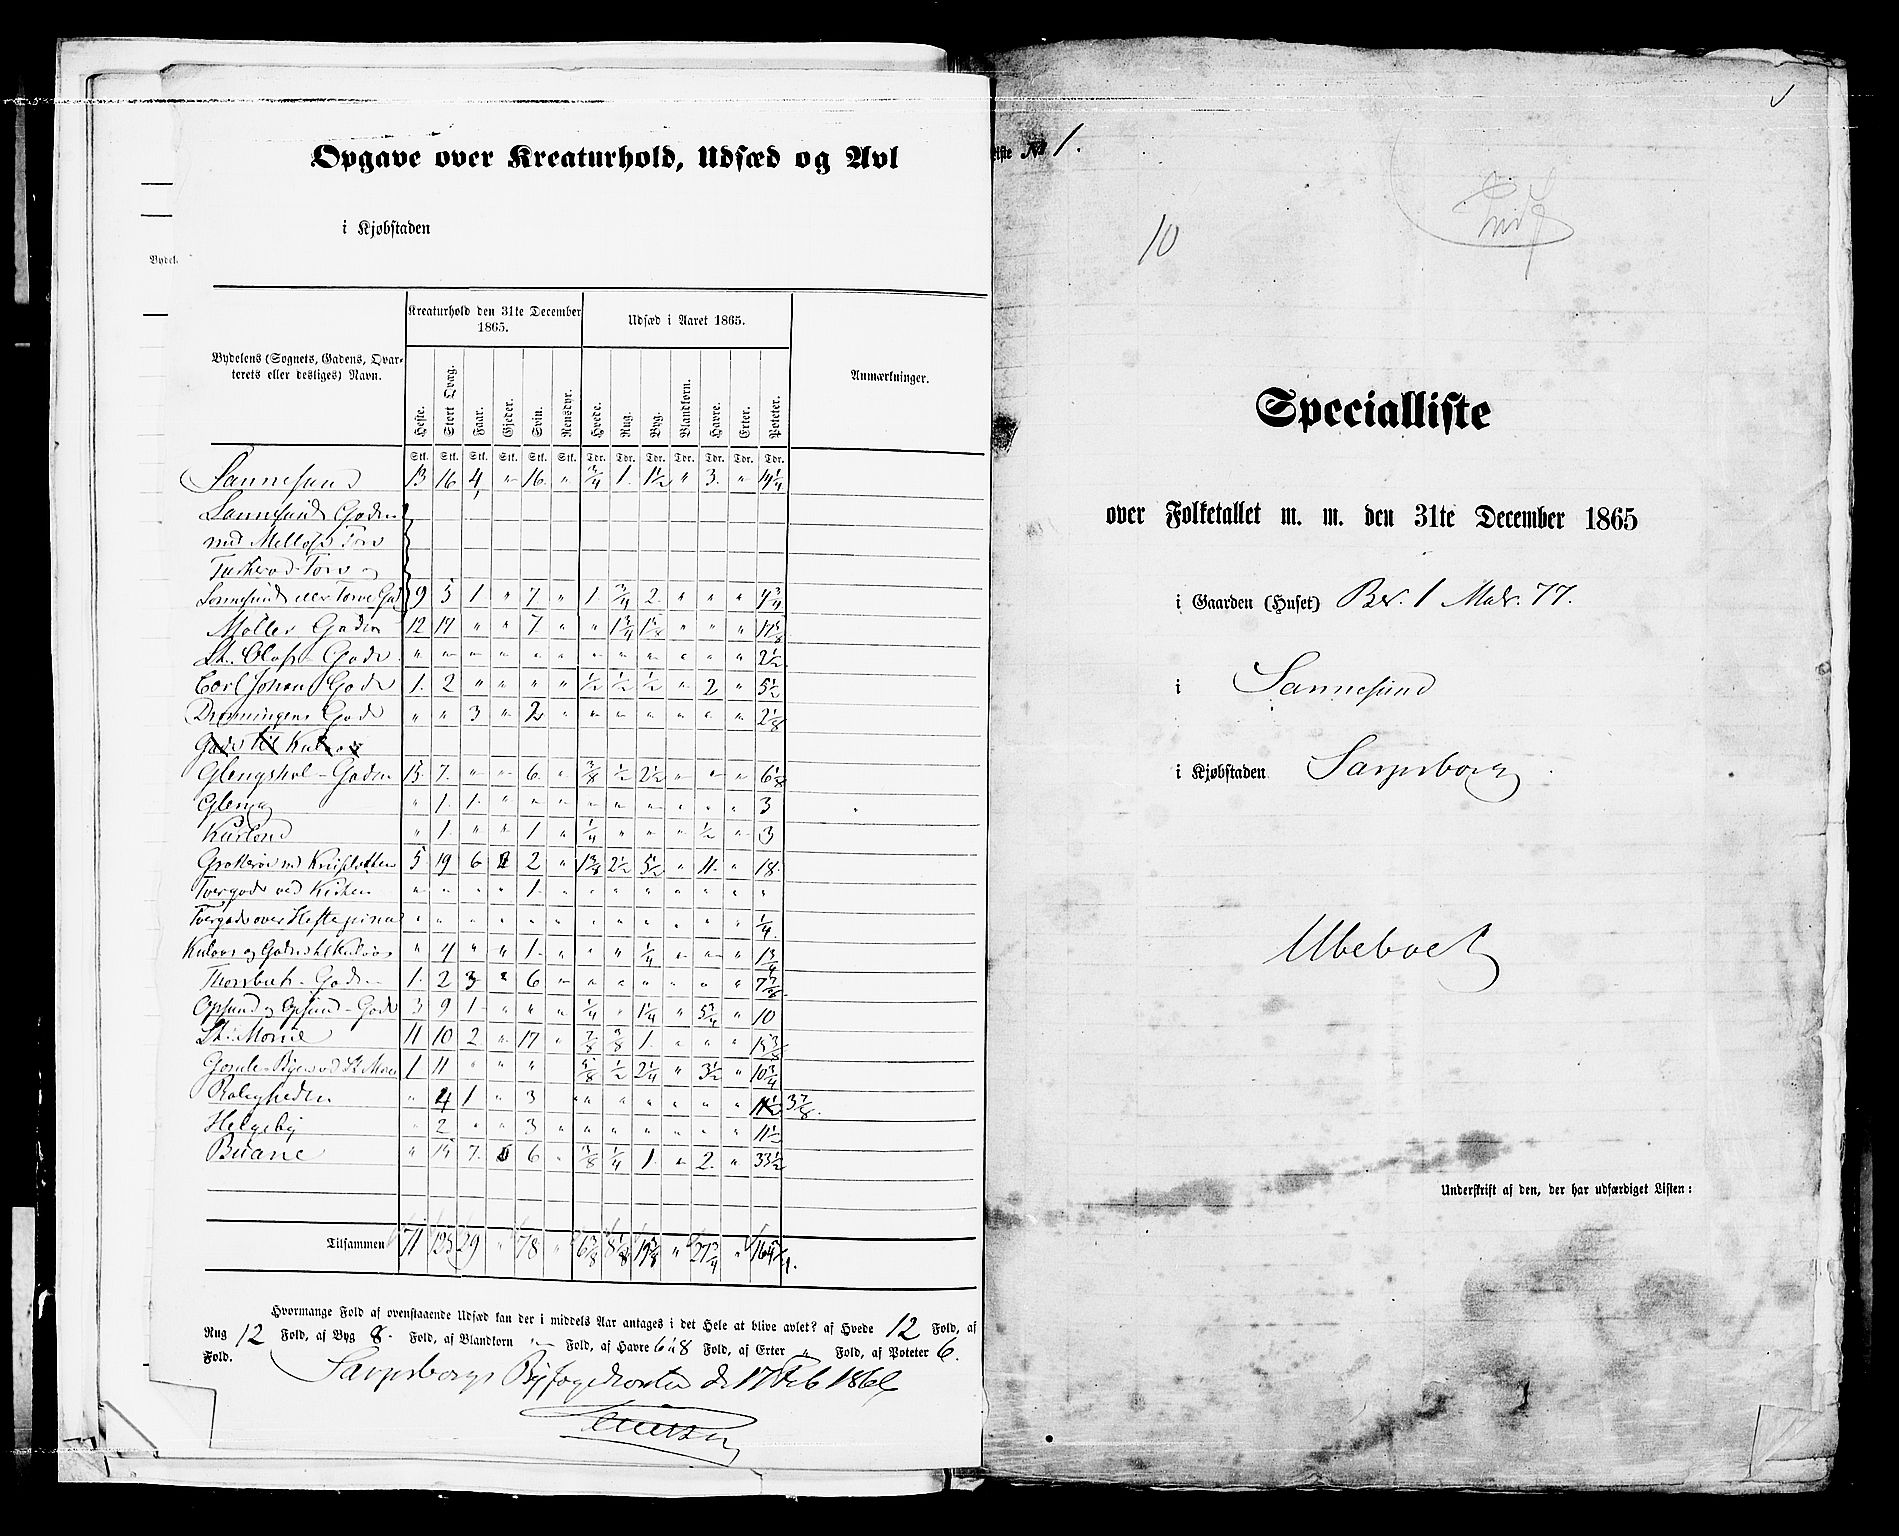 Opgave over Kreaturhold, Udsæd og Avl
i Kjøbstaden
Bydel.
Bydelens (Sognets, Gadens, Qvar-
terets eller desliges) Navn.
Kreaturhold den 31te December
1865.
Udsæd i Aaret 1865.
Anmærkninger.
Heste. Stort Qvæg. Faar. Gjeder. Svin. Rensdyr. Hvede. Rug. Byg. Blandkorn. Havre. Erter. Poteter.
Stk. Stk. Stk. Stk. Stk. Stk. Tdr. Tdr. Tdr. Tdr. Tdr. Tdr. Tdr.
Sannesund 13 16 4 " 16 " 3/4 1 1 1/2 " 3 " 14 1/4
Sannesunds Gaden
med
Torv
9 5 1 " 7 " 1 3/4 2 " " " 4 3/4
Møller Gaden 12 17 " " 7 "
St. Olafs Gade " " " " " " " " " " " " 2 1/2
Carl Johans Gade 1 2 " " " " 1/2 1/2 1/2 " 2 " 5 1/2
Dronningens Gade " " 3 " 2 " " " " " " " 2 1/8
Glengshol-Gaden 13 7 " " 6 " 3/8 1/2 2 1/2 " " " 6 1/8
Gleng " 1 1 " " " " " " " " " 3
Kurland " 1 " " 1 " 1/4 " " " 1/2 " 3
5 19 6 2 " 2 1/2 5 1/2 " 11 " 18
Tvergade ved Kirken " " " " 1 " " " " " " " "
Tvergade over " " " " " " " " " " " " 1/4
Kulaas og Gaden til Kulaas " 4 " " 1 " " " 1/4 " " "
Gade 1 2 3 " 6 " " " " " " "
Opsund og Opsund-Gade 3 9 1 " " " 1/4 " 1 1/4 " 5 3/4 " 10
St. Marie 11 10 2 " 17 " 7/8 3/8 1 " " "
Gamle Byen ved St. Marie 1 11 " " " 1/2 2 1/4 " 3 1/2 " 10 3/4
Rolighedn " 4 1 " 3 " " " " " " " 3 7/8.
Helgeby " 2 " " 3 " " " " " " "
Buane " 15 7 6 " 3/8 1/4 1 " 2 " 33 1/2
Tilsammen 71 125 29 " 78 " 6 3/8 8 1/8 19 3/8 " 27 3/4 "
Hvormange Fold af ovenstaaende Udsæd kan der i middels Aar antages i det Hele at blive avlet? af Hvede 12 Fold, af
Rug 12 Fold, af Byg 8 Fold, af Blandkorn " Fold, af Havre 6 à 8 Fold, af Erter " Fold, af Poteter 6.
Fold.
Sarpsborgs Byfogedkontor d. 17 Feb 1866
Liste № 1.
10
Specialliste
over Folketallet m. m. den 31te December 1865
i Gaarden (Huset) Bev. 1 Matr. 77.
i Sannesund
i Kjøbstaden Sarpsborg
Ubeboet
Underskrift af den, der har udfærdiget Listen: